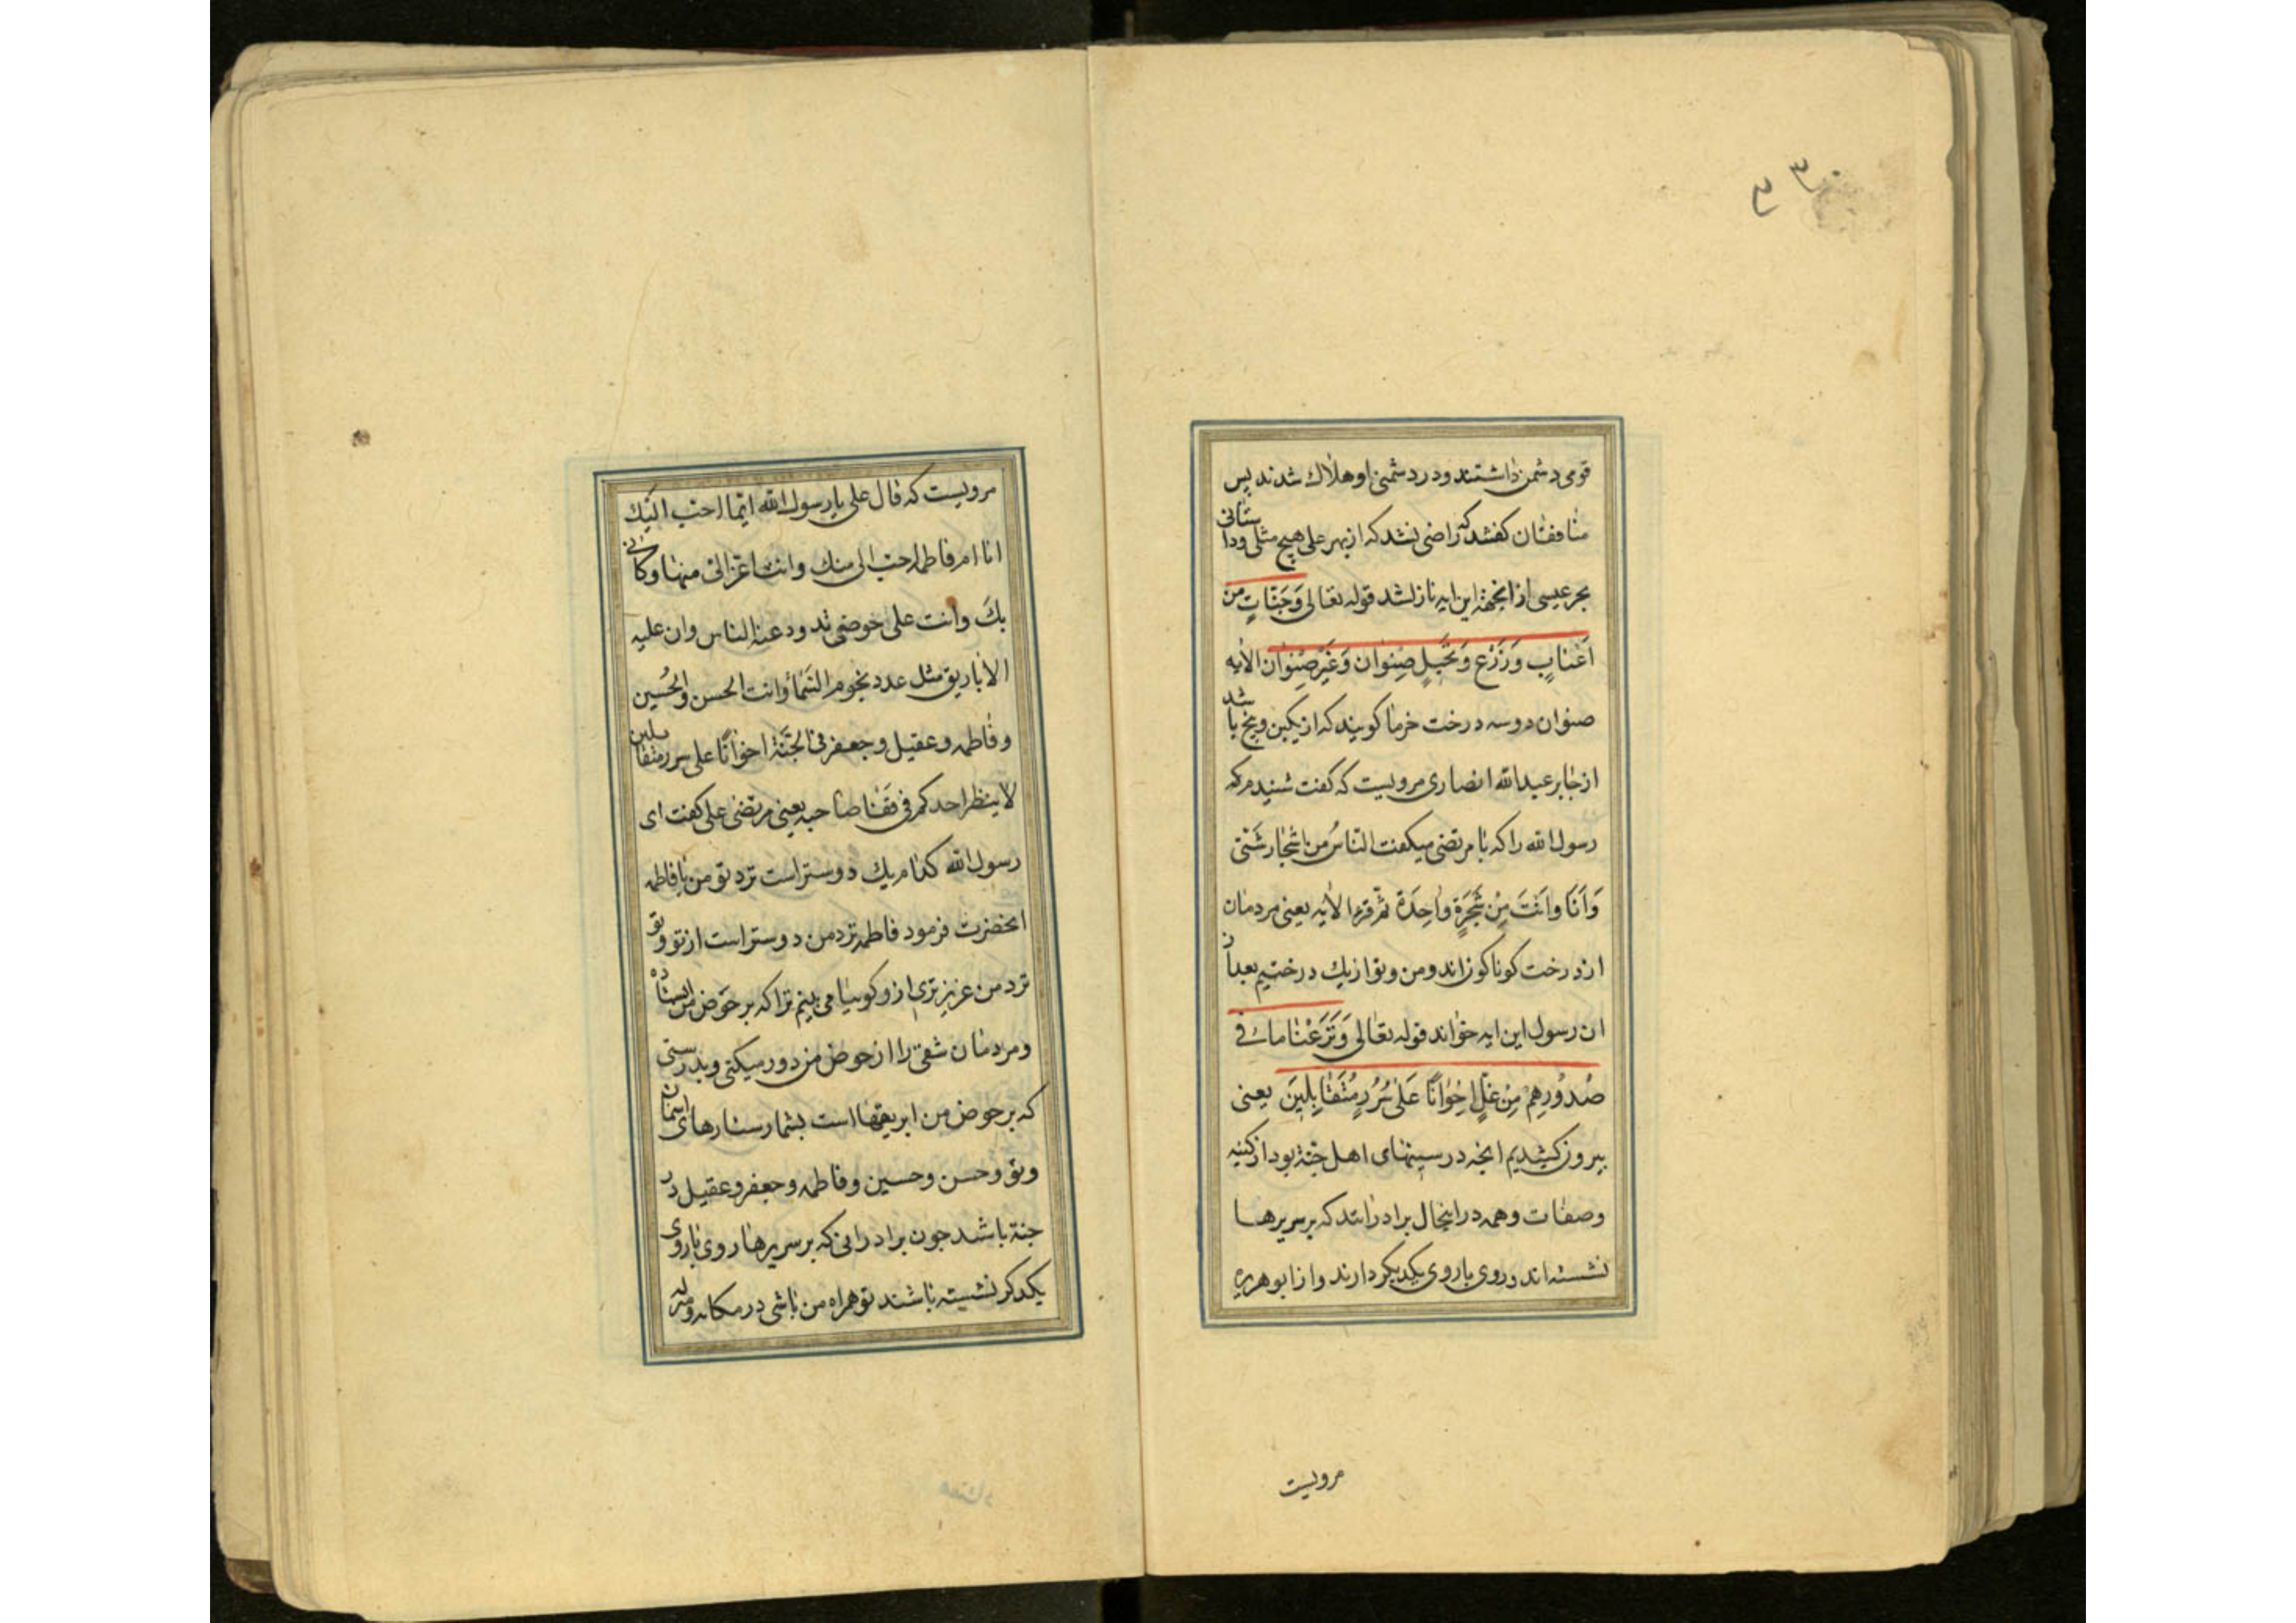 قومی دشمن داشتند ودر دشمنی او هلاك شدند پس
منافقان کفتند که راضی نشد که از بهر علی هیچ مثلی ودا ستانی
بجز عیسی از انجهة این ایه نازلشد قوله تعالی وَجَنّاتٍ من
اَعْنابٍ وَزَرْعٍ وَنَخیلٍ صِنوٰان وَغَیْرُ صِنوٰان الاٰیه
صنوان دوسه درخت خرما کویند که از یکبن وبیخ با شد
از جابر عبدالله انصاری مرویست که کفت شنیدم که
رسول الله را که با مرتضی میکفت الناسُ من اشجار شَتّی
وَاَنَا وانَتَ مِنْ شَجَرَةٍ واحِدَة ثم قرء الاٰیه یعنی مردمان
از درخت کوناکون اند ومن وتو از یك درختیم بعد از
ان رسول این ایه خواند قوله تعالی وَنَزَعْنا ما فی
صُدُورِهِمْ مِنْ غِلٍّ اِخْوٰانًا عَلیٰ سُرُرٍ مُتَقٰابِلینَ یعنی
بیرون کشیدیم انچه در سینهای اهل جنة بود از کینه
وصفات وهمه در اینحال برادرانند که بر سریرها
نشسته اند وروی با روی یکدیکر دارند واز ابوهریره
مرویست
مرویست که قال علی یا رسول الله ایّما احب الیك
انا ام فاطمه احب الی منك وانت اعز الیّ منها وکانی
بكَ وانت علی حوضی تدود عنه الناس وان علیه
الاباریق مثل عدد نجوم السَّمٰاء وانت الحسن والحُسین
وفاطمه وعقیل وجعفر فی الجَنّة اخوانًا علی سرر متقا بلین
لا ینظر احدکم فی قفا صاحبه یعنی مرتضی علی کفت ای
رسول الله کدام یك دوستر است نزد تو من یا فاطمه
انحضرت فرمود فاطمه نزد من دوستر است از تو وتو
نزد من عزیز تری از و کوییا می بینم ترا که بر حوض من ایستا ده
ومردمان شقی را از حوض من دور میکنی وبدرستی
که بر حوض من ابریقها است بشمار ستارهای اسمان
وتو وحسن وحسین وفاطمه وجعفر وعقیل در
جنة باشد چون برادرانی که بر سریرها روی باروی
یکدکر نشسته باشند تو همراه من باشی در مکانه ومنزله